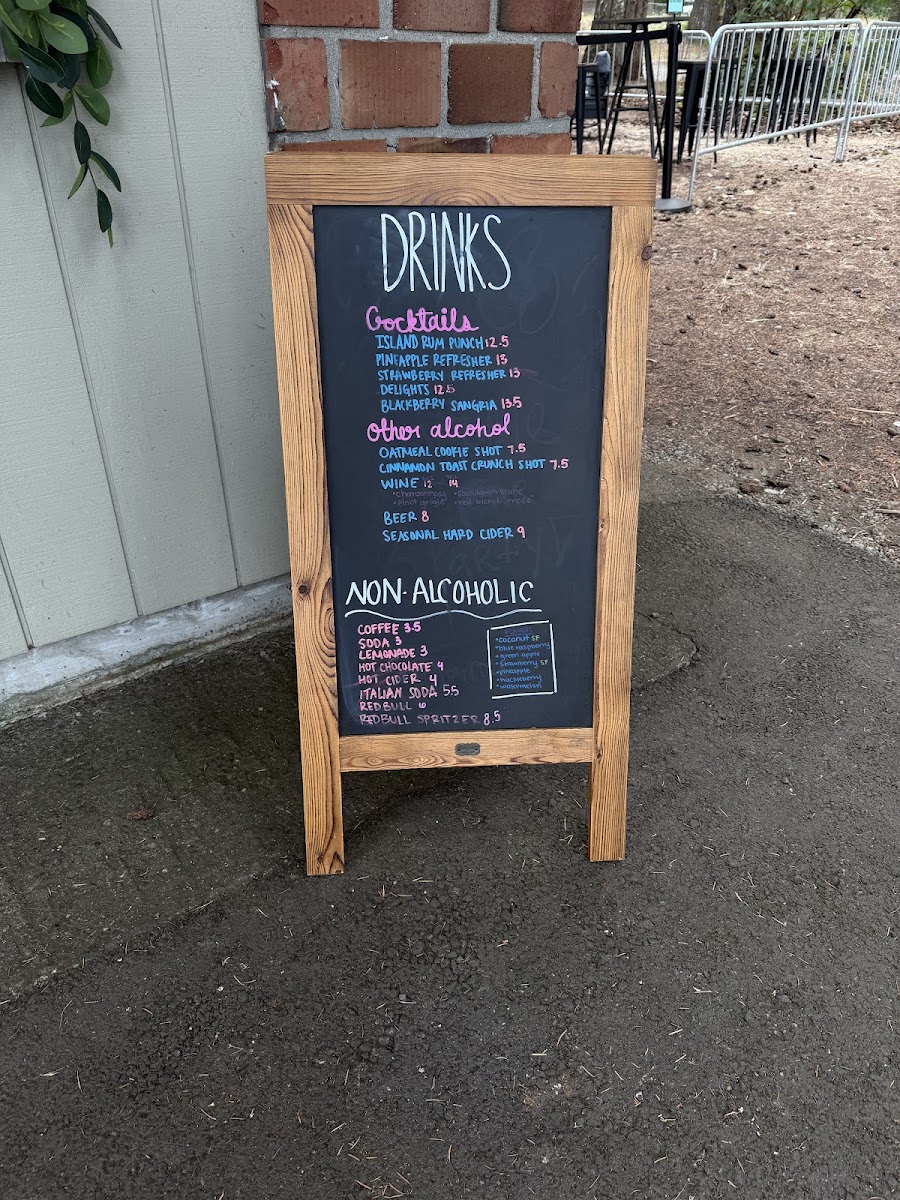 DRINKS
Cocktails
ISLAND RUM PUNCH 12.5
PINEAPPLE REFRESHER 13
STRAWBERRY REFRESHER 13
DELIGHTS 12.5
BLACKBERRY SANGRIA 13.5
Other alcohol
OATMEAL COOKIE SHOT 7.5
CINNAMON TOAST CRUNCH SHOT 7.5
WINE 12 14
•chardonnay •sauvignon blanc
•pinot grigio •red blend •rose
BEER 8
SEASONAL HARD CIDER 9
NON-ALCOHOLIC
COFFEE 3.5
SODA 3
LEMONADE 3
HOT CHOCOLATE 4
HOT CIDER 4
ITALIAN SODA 5.5
REDBULL 6
REDBULL SPRITZER 8.5
FLAVORS
•coconut SF
•blue raspberry
•green apple
•strawberry SF
•pineapple
•huckleberry
•watermelon